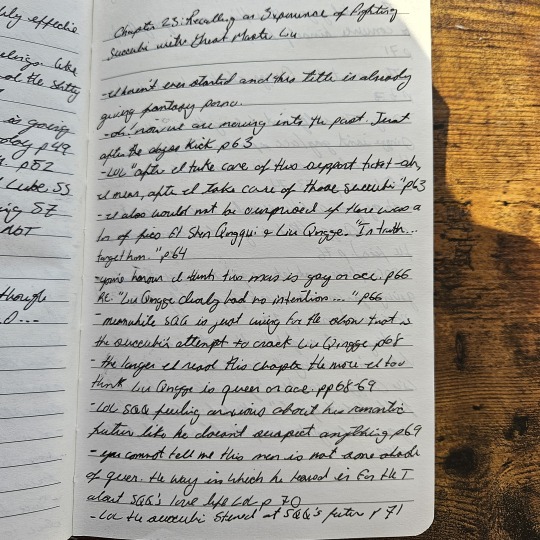 ly effective
like
the Salty
is going
p49
p52
Lube. 55
57
NOT
though
Chapter 23: Recalling an Experience of Fighting
Succubi with Great Master Liu
-I haven't even started and this title is already
giving fantasy porno.
-oh, now we are moving into the past. Just
after the abyss kick p63
-LOL "after I take care of this support ticket-ah,
I mean, after I take care of those succubi" p63
-I also would not be surprised if there was a
lot of fics of Shen Qingqiu & Liu Qingge. "In truth...
together." p64
-your honour I think this man is gay or ace. p66
RE: "Liu Qingge clearly had no intention..." p66
-meanwhile SQQ is just living for the show that is
the succubi's attempt to crack Liu Qingge p68
-the longer I read this chapter the more I too
think Liu Qingge is queer or ace. pp68-69
-LOL SQQ feeling anxious about his romantic
future like he doesn't suspect anything p69
-you cannot tell me this man is not some shade
of queer. the way in which he leaned in for the T
about SQQ's love life LOL p 70
-LOL the succubi stared at SQQ's future p 71